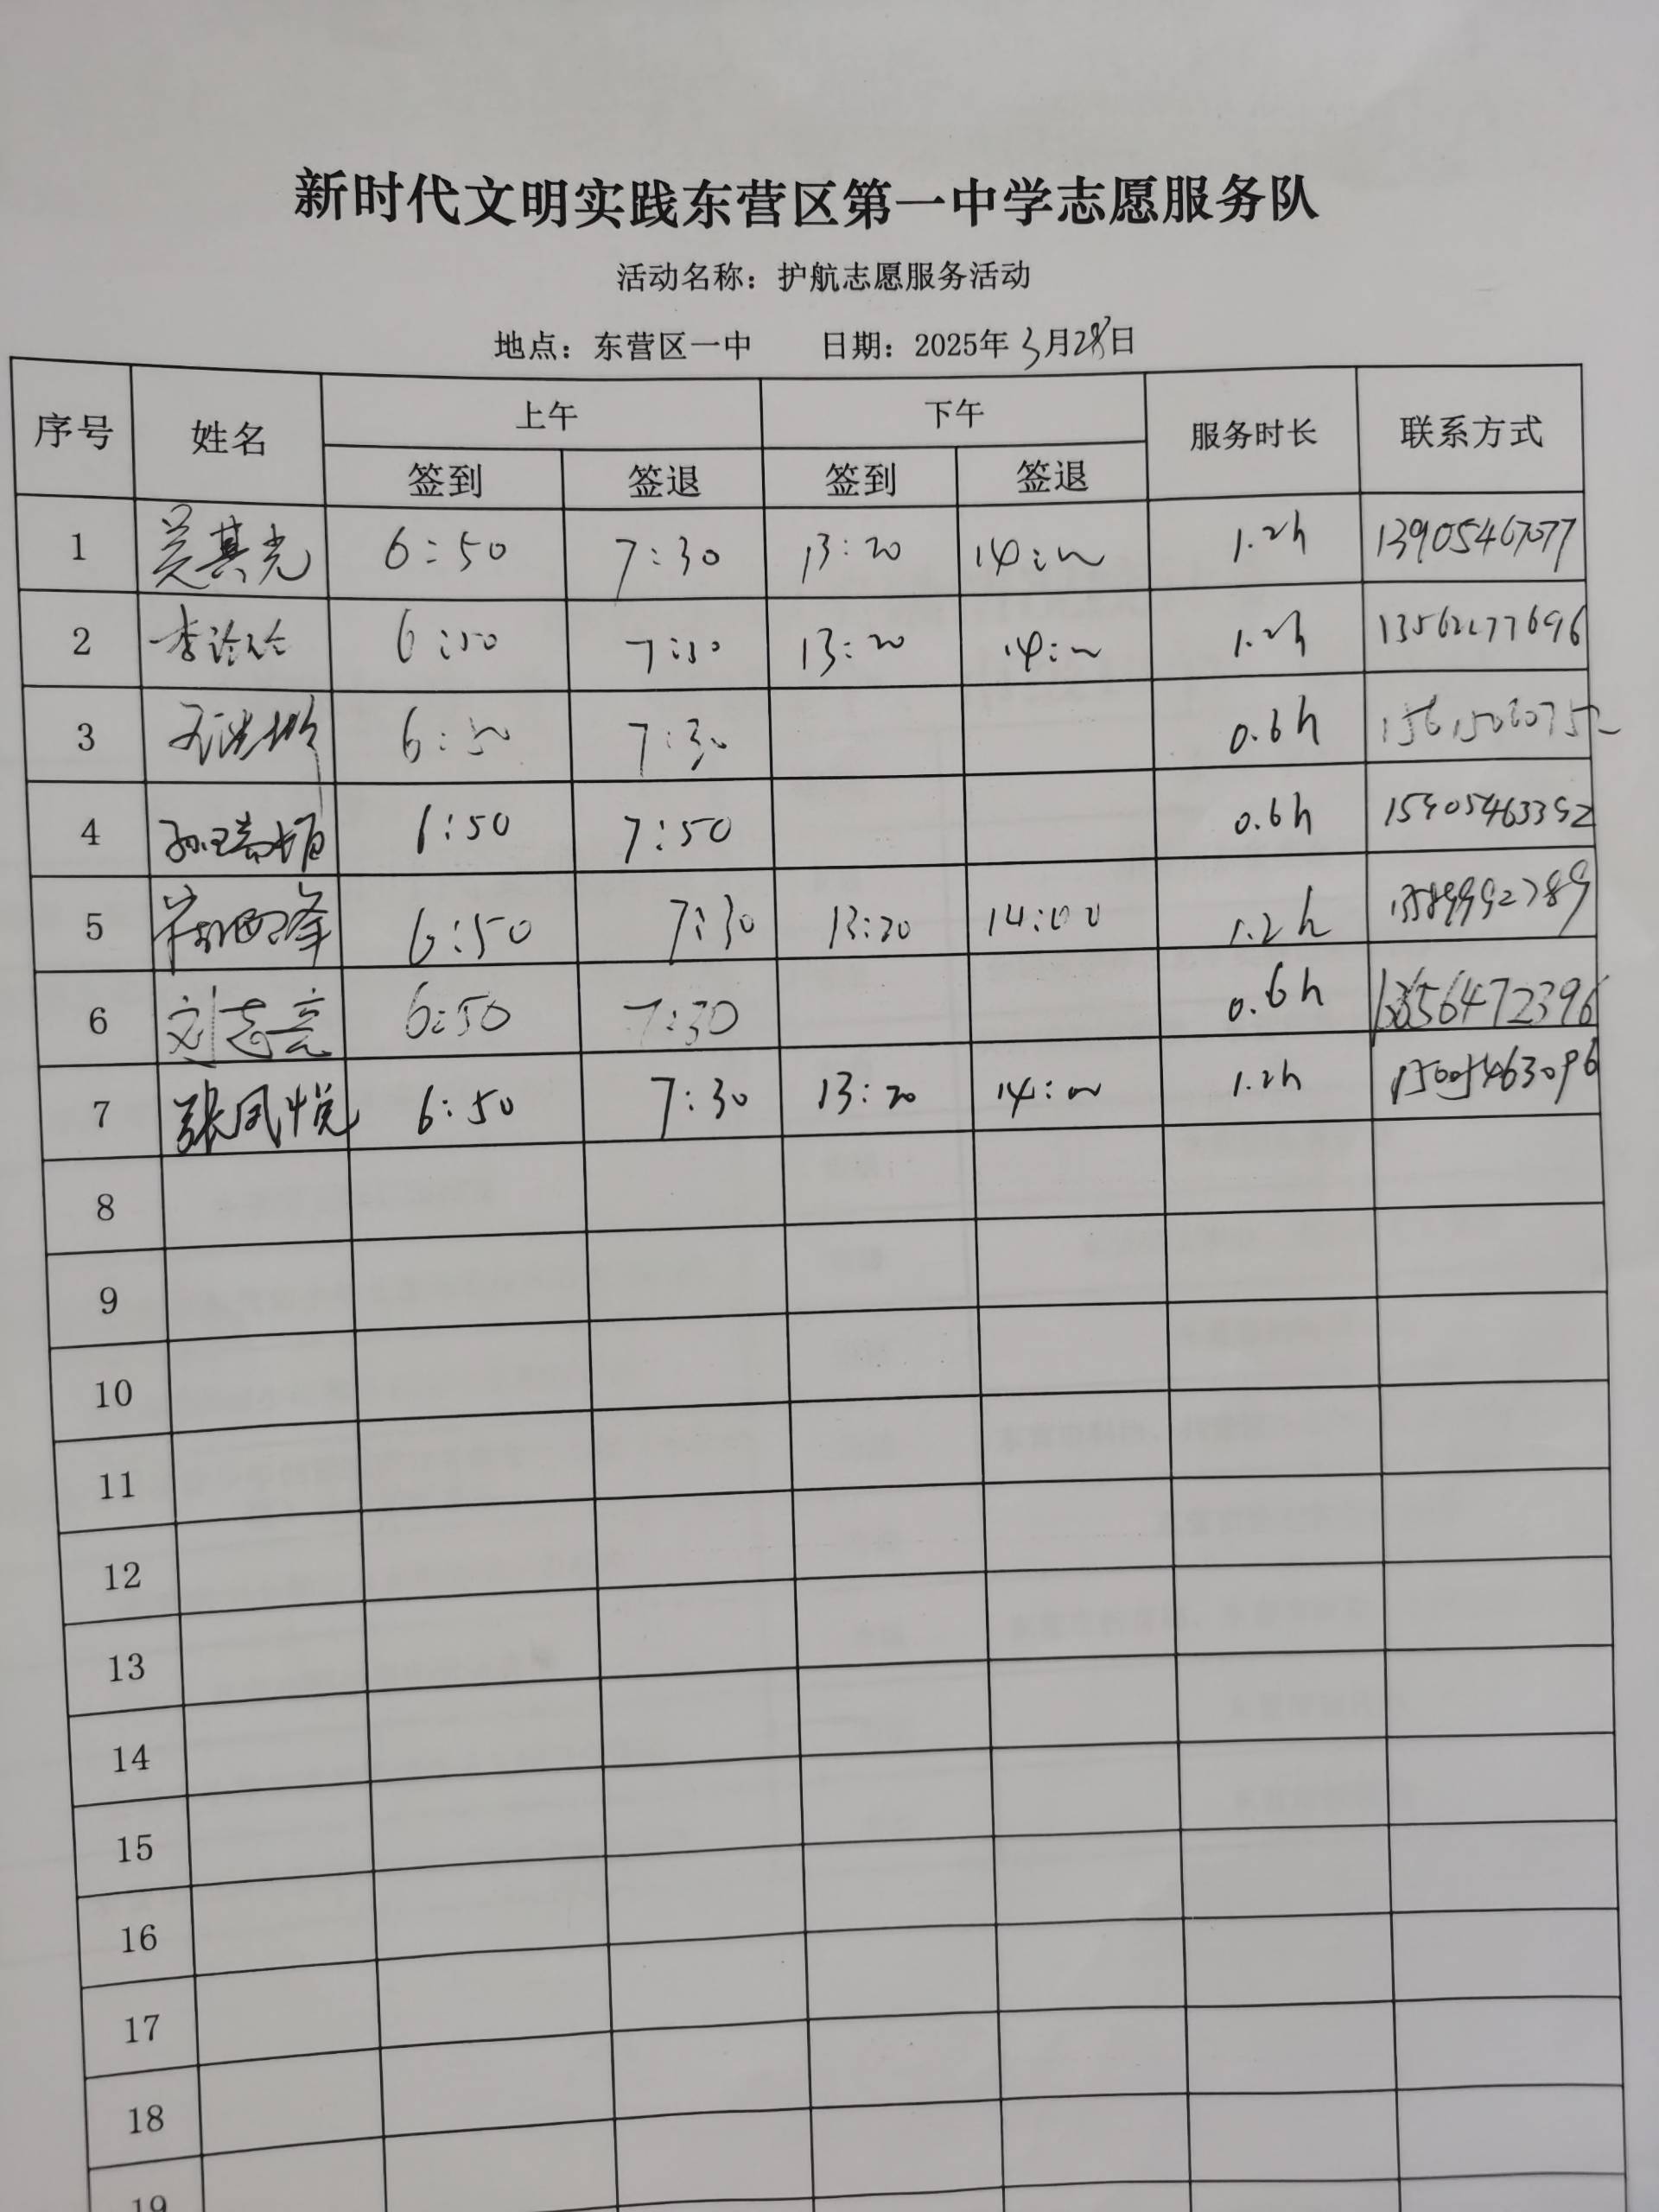 新时代文明实践东营区第一中学志愿服务队
活动名称：护航志愿服务活动
地点：东营区一中 日期：2025年3月28日
序号 姓名 上午 下午 服务时长 联系方式
签到 签退 签到 签退
1 吴其光 6:50 7:30 13:20 14:00 1.2h 13905467077
2 6:50 7:30 13:20 14:00 1.2h
3 6:50 7:30 0.6h
4 6:50 7:50 0.6h 15905463392
5 6:50 7:30 13:20 14:00 1.2h
6 刘志亮 6:50 7:30 0.6h 13656472396
7 张凤悦 6:50 7:30 13:20 14:00 1.2h 15005463096
8
9
10
11
12
13
14
15
16
17
18
19